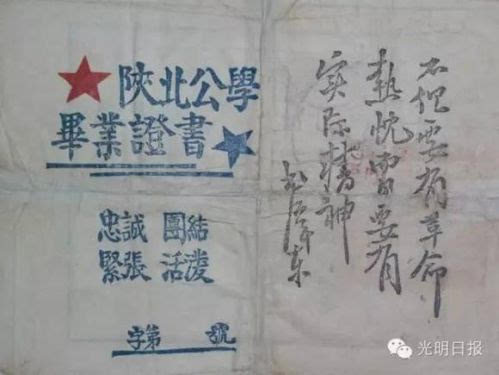 陝北公學
畢業證書
忠誠 團結
緊張 活潑
字第 號
不但要有革命
熱忱要有
实际精神
毛泽东
光明日报